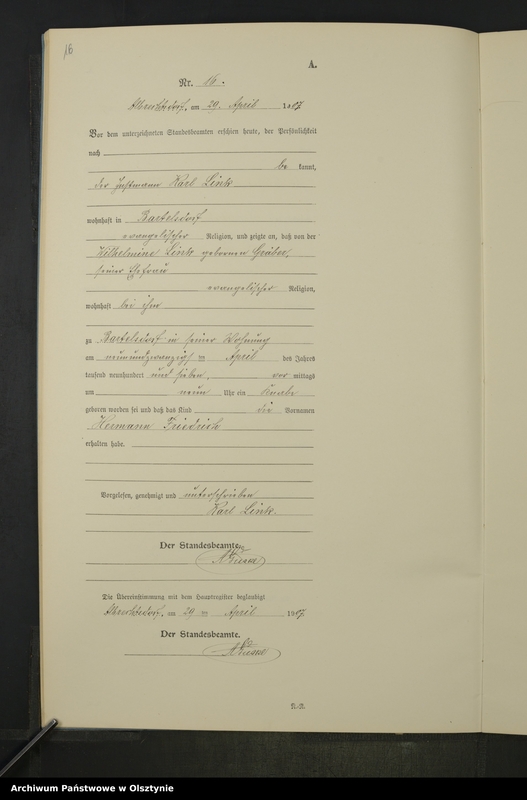 16
A.
Nr. 16.
Albrechtsdorf, am 29. April 1907
Vor dem unterzeichneten Standesbeamten erschien heute, der Persönlichkeit
nach
be kannt,
der Karl Link
wohnhaft in Bartelsdorf
evangelischer Religion, und zeigte an, daß von der
Wilhelmine Link gebornen Gruber,
seiner Ehefrau
evangelischer Religion,
wohnhaft bei ihm
zu Bartelsdorf in seiner Wohnung
am neunundzwanzigsten April des Jahres
tausend neunhundert und sieben, vor mittags
um neun Uhr ein Knabe
geboren worden sei und daß das Kind die Vornamen
Hermann Friedrich
erhalten habe.
Vorgelesen, genehmigt und unterschrieben
Karl Link.
Der Standesbeamte.
Die Übereinstimmung mit dem Hauptregister beglaubigt
Albrechtsdorf, am 29 ten April 1907
Der Standesbeamte.
Archiwum Państwowe w Olsztynie